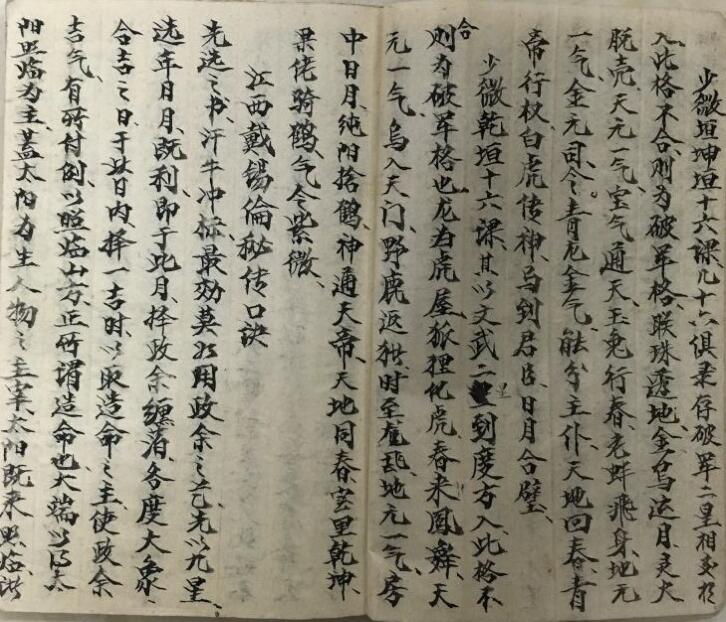 少微垣坤垣十六课几十六俱录存破军二星相交于
入此格不合则为破军格联珠透地金乌达月灵犬
脱壳天元一气宝气通天玉兔行春老蚌飛身地元
一气金元司令青龙金气能分主仆天地回春青
帝行权白虎传神马到君臣日月合璧
少微乾垣十六课其以文武二星到度方入此格不
合则为破军格也龙为虎屋狐狸化虎春来凤舞天
元一气乌入天门野鹿返时至地元一气房
中日月纯阳捨鹤神通天帝天地同春宝里乾坤
果佬骑鹤气令紫微
江西戴锡倫秘传口訣
先选之书汗牛冲栋最効莫如用政余之艺先以九星
选年日月既利即于此月择政余缠落各度大象
合吉之日于此日内择一吉时以取造命之主使政余
吉气有所付例以照临山方正所谓造命也大端以
阳照临为主蓋太阳为生人物之主宰太阳既来照临诸